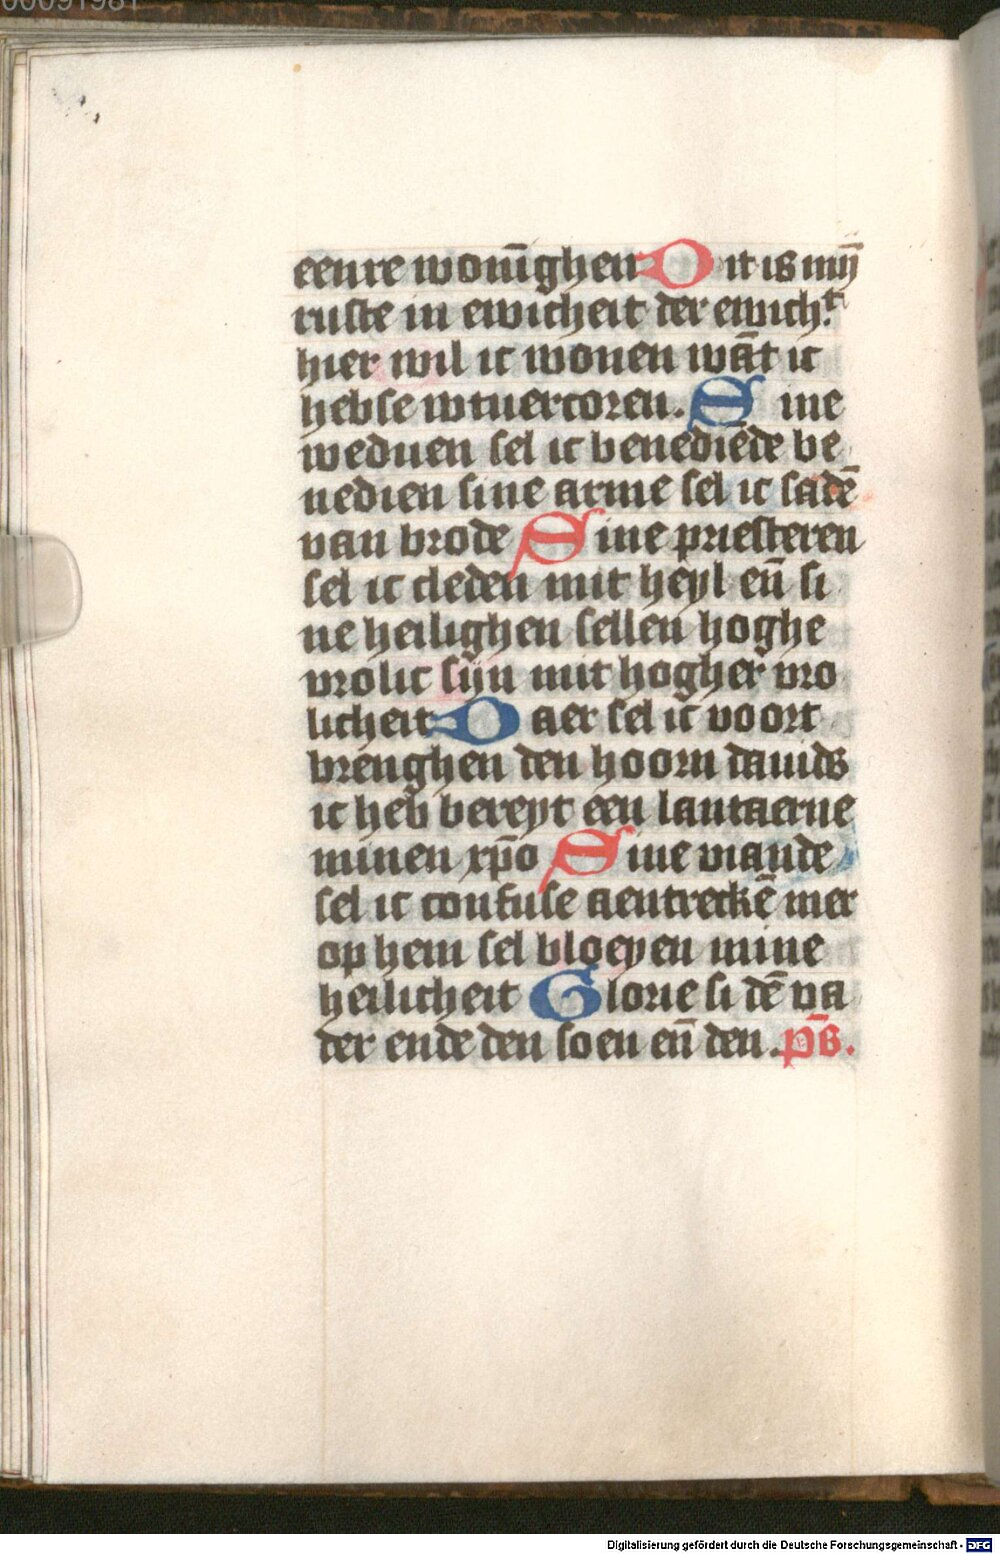 00091981
eenre wonīghen Dit is mȳ
ruste in ewicheit der ewich.t
hier wil ic wonen wāt ic
hebse wtuercoren. Sine
weduen sel ic benediēde be
nedien sine arme sel ic sadē
van brode Sine priesteren
sel ic cleden mit heyl eñ si
ne heilighen sellen hoghe
vrolic sijn mit hogher vro
licheit Daer sel ic voort
brenghen den hoorn dauids
ic heb bereyt een lantaerne
minen xp̄o Sine viande
sel ic confuse aentreckē mer
op hem sel bloeyen mine
heilicheit Glorie si dē va
der ende den soen eñ den. p̄s.
Digitalisierung gefördert durch die Deutsche Forschungsgemeinschaft - DFG